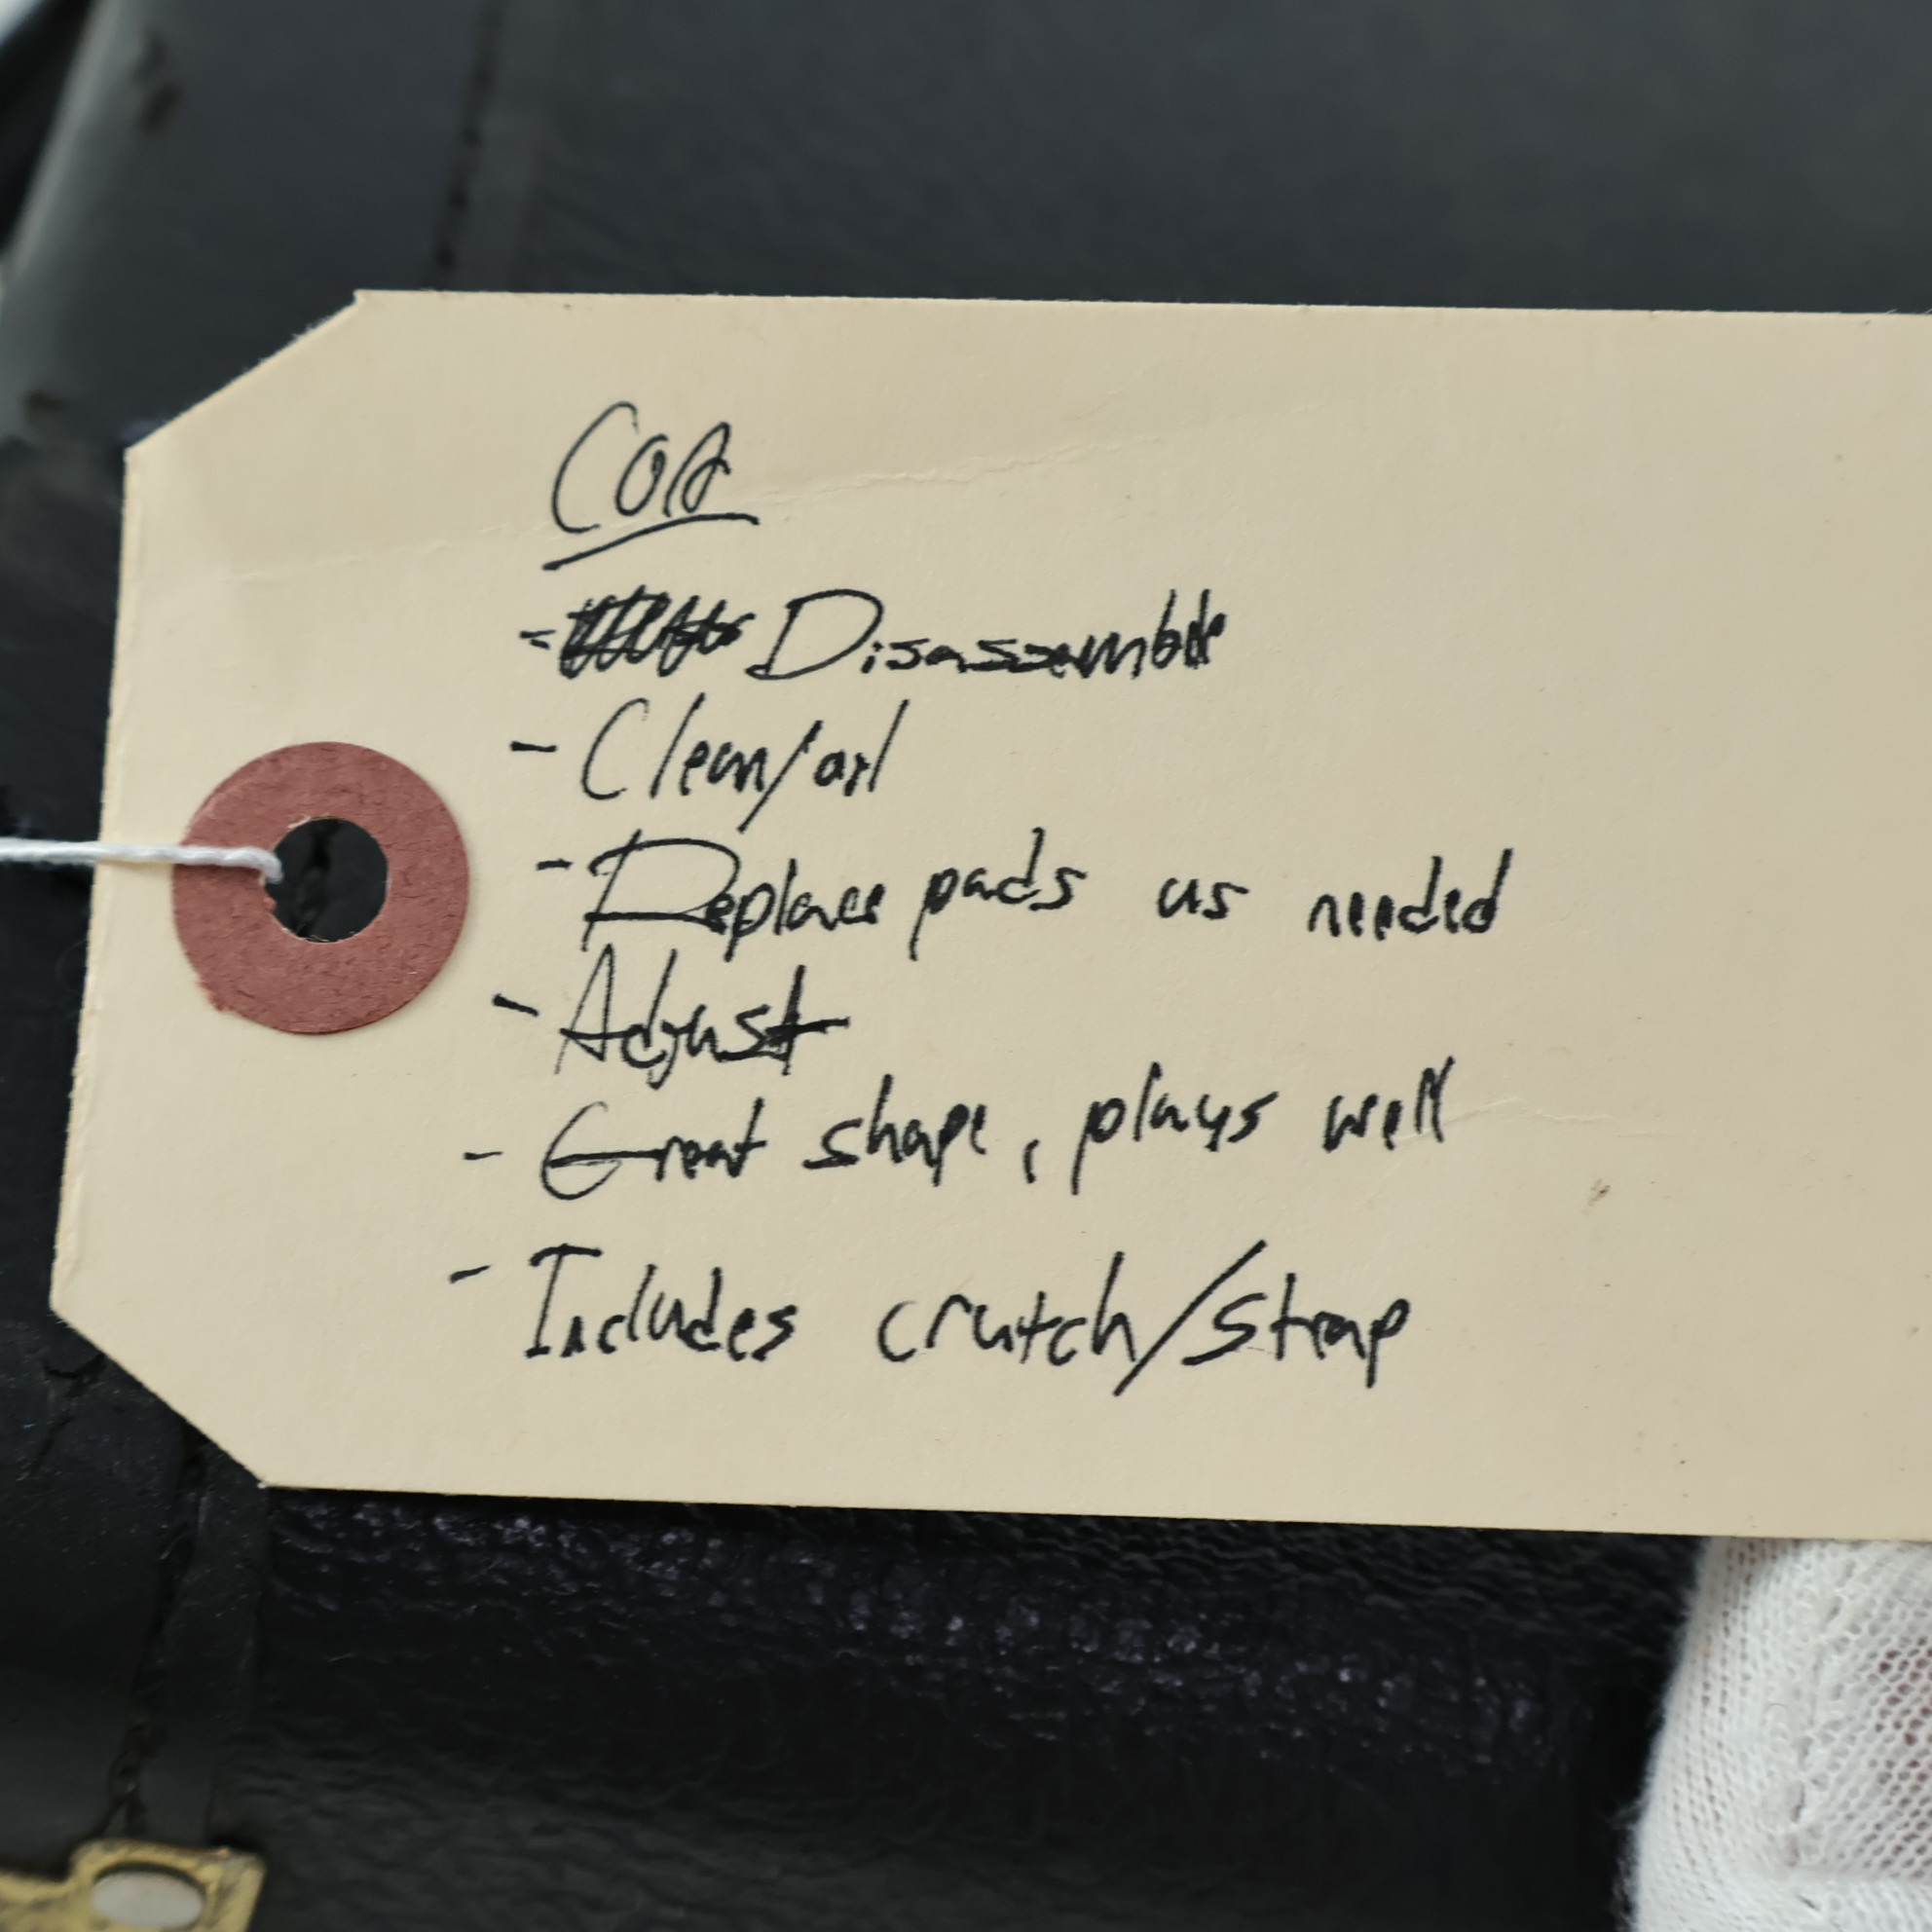 COA
- Disassemble
- Clean/oil
- Replace pads as needed
- Adjust
- Great shape, plays well
- Includes crutch/strap